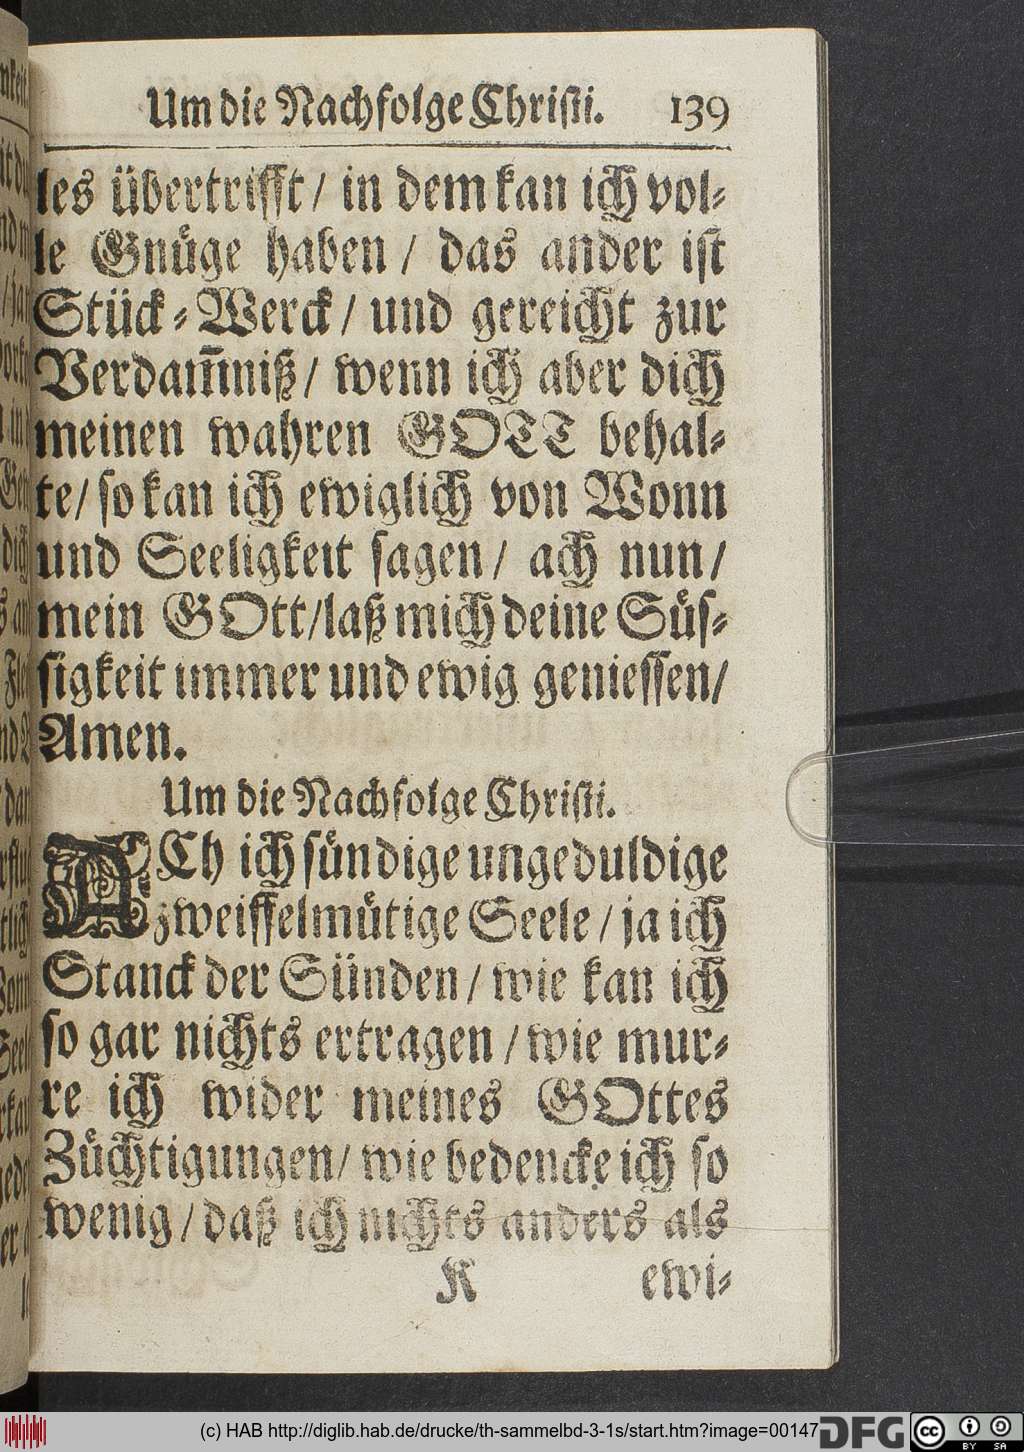 Um die Nachfolge Christi. 139
les übertrifft / in dem kan ich vol-
le Gnüge haben / das ander ist
Stück-Werck / und gereicht zur
Verdam̄niß / wenn ich aber dich
meinen wahren GOTT behal-
te / so kan ich ewiglich von Wonn
und Seeligkeit sagen / ach nun /
mein GOtt / laß mich deine Süs-
sigkeit immer und ewig geniessen /
Amen.
Um die Nachfolge Christi.
ACh ich sündige ungeduldige
zweiffelmütige Seele / ja ich
Stanck der Sünden / wie kan ich
so gar nichts ertragen / wie mur-
re ich wider meines GOttes
Züchtigungen / wie bedencke ich so
wenig / daß ich nichts anders als
K ewi-
(c) HAB http://diglib.hab.de/drucke/th-sammelbd-3-1s/start.htm?image=00147
DFG
cc
BY SA